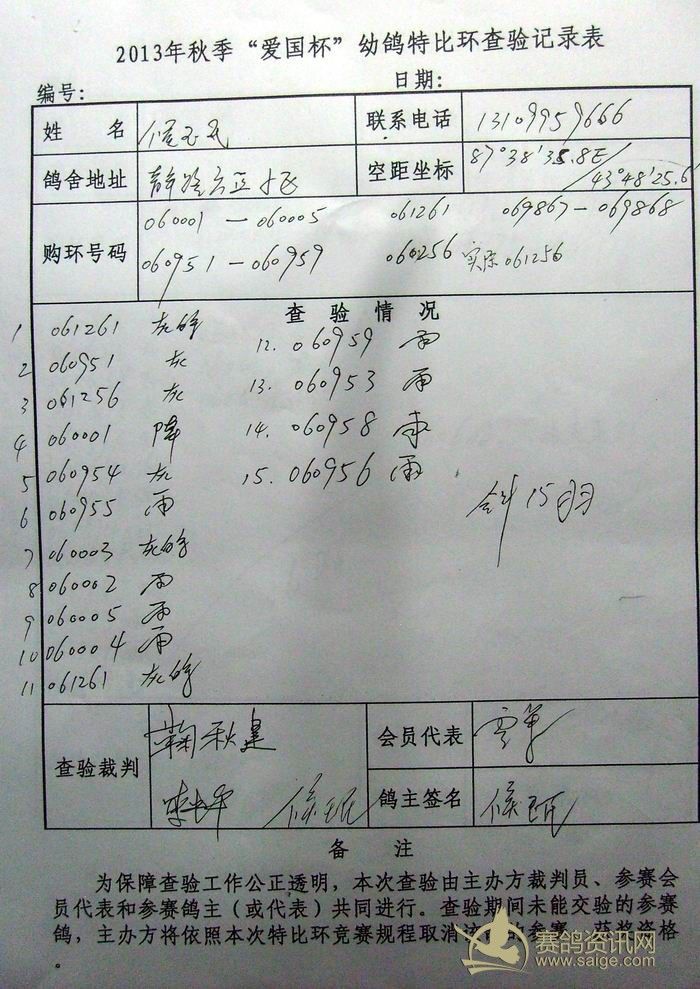 2013年秋季“爱国杯”幼鸽特比环查验记录表
编号: 日期:
姓 名 联系电话 13109959666
鸽舍地址 空距坐标 87°38'35.8E/43°48'25.6
购环号码 060001—060005 061261 069867—069868
060951—060959 060256 实际061256
查 验 情 况
1 061261 灰
2 060951 灰 12. 060959 雨
3 061256 灰 13. 060953 雨
4 060001 降 14. 060958
5 060954 灰 15. 060956 雨
6 060955 雨 合计15羽
7 060003 灰
8 060002 雨
9 060005 雨
10 060004 雨
11 061261 灰
查验裁判 会员代表
鸽主签名
备 注
为保障查验工作公正透明，本次查验由主办方裁判员、参赛会
员代表和参赛鸽主（或代表）共同进行。查验期间未能交验的参赛
鸽，主办方将依照本次特比环竞赛规程取消该 的参赛、获奖资格
。
赛鸽资讯网
www.saige.com